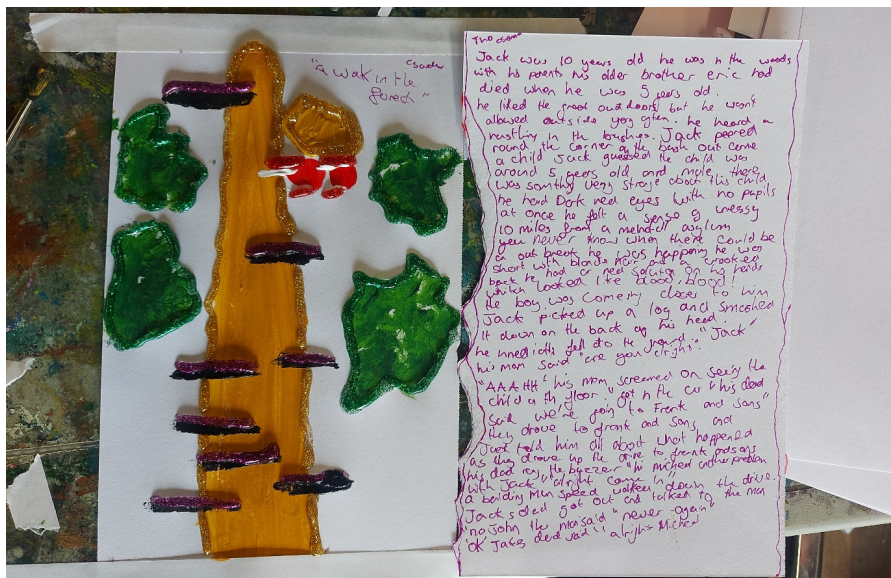 "a wak in the
forest"
Jack was 10 years old he was n the woods
with his parents his older brother eric had
died when he was 5 years old.
he liked the great outdoors but he wasn't
allowed outside very often. he heard a
rustling in the bushes. Jack peared
round the corner of the bush out came
a child Jack guessed the child was
around 5 years old and male, there
was somthing very strage about this child
he had Dark red eyes with no pupils
at once he felt a sense of
10 miles from a asylum
you never know when there could be
an out break he was happening he was
short with blonde hair and a crooked
back he had a red on his hands
which looked like blood, blood!
the boy was coming closer to him
Jack picked up a log and smashed
it down on the back of his head.
he fell to the ground. "Jack"
his mom said "are you alright."
"AAAHH" his mom screamed on seeing the
child on th floor "get n the car" his dad
said "we're going to Frank and Sons"
they drove to frank and sons and
Jack told him all about what happened
as the drove up the drive to frank and sons
his dad the buzzer "hi micheal another problem
with Jack" "alright come
a man speed walked down the drive.
Jack's dad got out and talked to the man
"no John the man said "never again"
"ok" Jaks dad said "alright Micheal"